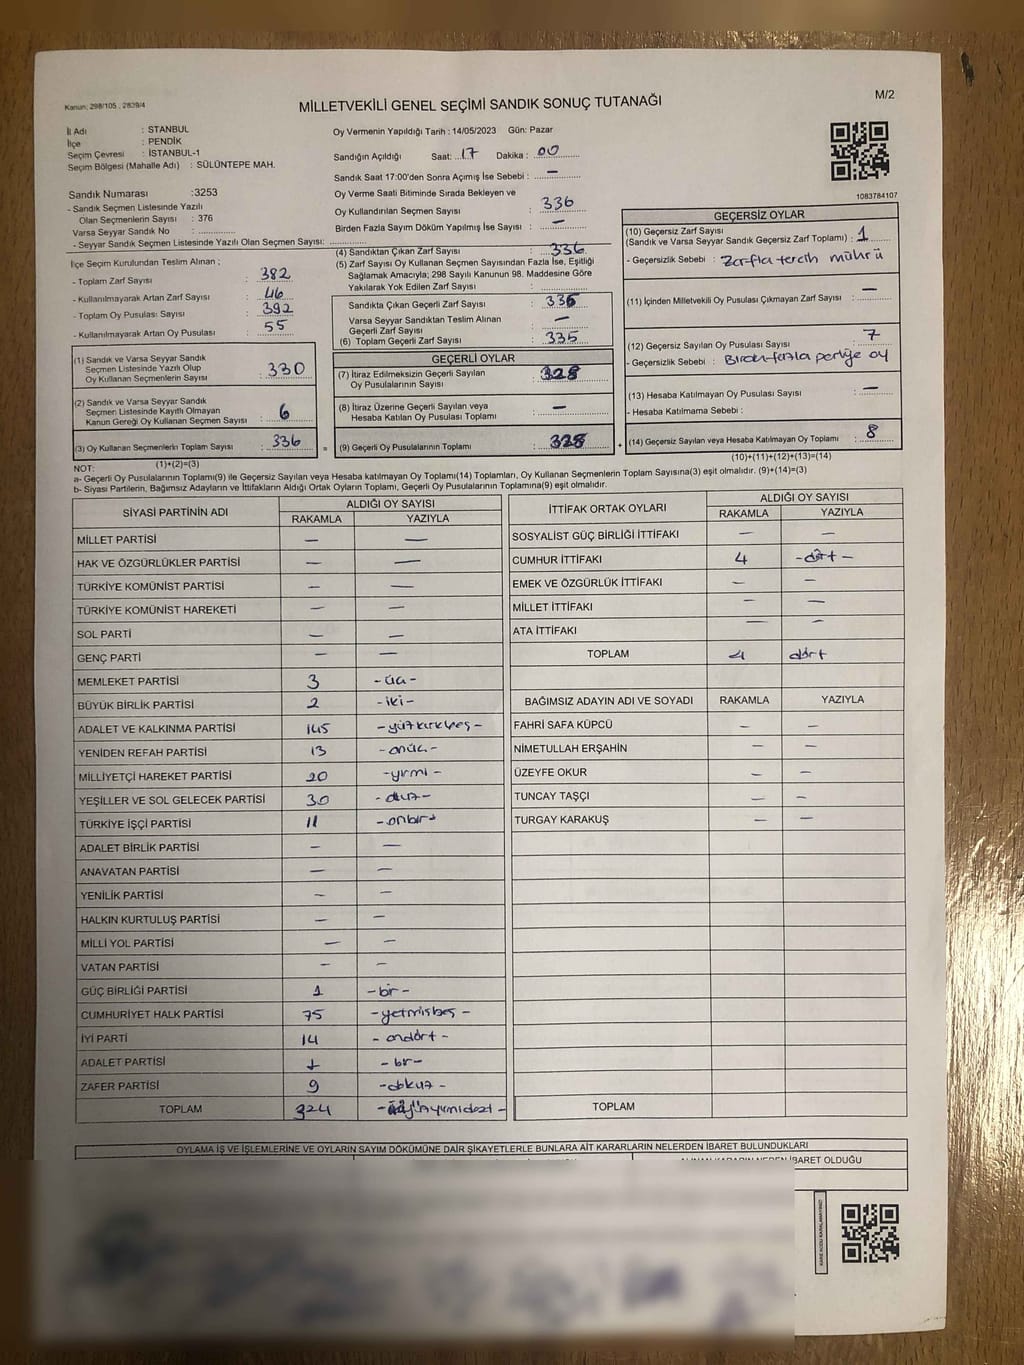 Kanun: 298/105 , 2839/4
MİLLETVEKİLİ GENEL SEÇİMİ SANDIK SONUÇ TUTANAĞI
M/2
İl Adı : STANBUL
İlçe : PENDİK
Seçim Çevresi : İSTANBUL-1
Seçim Bölgesi (Mahalle Adı) : SÜLÜNTEPE MAH.
Oy Vermenin Yapıldığı Tarih : 14/05/2023 Gün: Pazar
Sandığın Açıldığı Saat: 17 Dakika : 00
Sandık Saat 17:00'den Sonra Açımış İse Sebebi : —
Oy Verme Saati Bitiminde Sırada Bekleyen ve
Oy Kullandırılan Seçmen Sayısı : 336
Birden Fazla Sayım Döküm Yapılmış İse Sayısı : —
1083784107
Sandık Numarası :3253
- Sandık Seçmen Listesinde Yazılı
Olan Seçmenlerin Sayısı : 376
Varsa Seyyar Sandık No :
- Seyyar Sandık Seçmen Listesinde Yazılı Olan Seçmen Sayısı:
İlçe Seçim Kurulundan Teslim Alınan ;
- Toplam Zarf Sayısı : 382
- Kullanılmayarak Artan Zarf Sayısı : 46
- Toplam Oy Pusulası Sayısı : 392
- Kullanılmayarak Artan Oy Pusulası : 55
(1) Sandık ve Varsa Seyyar Sandık
Seçmen Listesinde Yazılı Olup
Oy Kullanan Seçmenlerin Sayısı : 330
(2) Sandık ve Varsa Seyyar Sandık
Seçmen Listesinde Kayıtlı Olmayan
Kanun Gereği Oy Kullanan Seçmen Sayısı : 6
(3) Oy Kullanan Seçmenlerin Toplam Sayısı : 336
(1)+(2)=(3)
(4) Sandıktan Çıkan Zarf Sayısı : 336
(5) Zarf Sayısı Oy Kullanan Seçmen Sayısından Fazla İse, Eşitliği
Sağlamak Amacıyla; 298 Sayılı Kanunun 98. Maddesine Göre
Yakılarak Yok Edilen Zarf Sayısı :
Sandıkta Çıkan Geçerli Zarf Sayısı : 335
Varsa Seyyar Sandıktan Teslim Alınan
Geçerli Zarf Sayısı : —
(6) Toplam Geçerli Zarf Sayısı : 335
GEÇERLİ OYLAR
(7) İtiraz Edilmeksizin Geçerli Sayılan
Oy Pusulalarının Sayısı : 328
(8) İtiraz Üzerine Geçerli Sayılan veya
Hesaba Katılan Oy Pusulası Toplamı : —
= (9) Geçerli Oy Pusulalarının Toplamı : 328
GEÇERSİZ OYLAR
(10) Geçersiz Zarf Sayısı
(Sandık ve Varsa Seyyar Sandık Geçersiz Zarf Toplamı) : 1
- Geçersizlik Sebebi : Zarfta tercih mührü
(11) İçinden Milletvekili Oy Pusulası Çıkmayan Zarf Sayısı : —
(12) Geçersiz Sayılan Oy Pusulası Sayısı : 7
- Geçersizlik Sebebi : Birden fazla partiye oy
(13) Hesaba Katılmayan Oy Pusulası Sayısı : —
- Hesaba Katılmama Sebebi :
+ (14) Geçersiz Sayılan veya Hesaba Katılmayan Oy Toplamı : 8
(10)+(11)+(12)+(13)=(14)
NOT:
a- Geçerli Oy Pusulalarının Toplamı(9) ile Geçersiz Sayılan veya Hesaba katılmayan Oy Toplamı(14) Toplamları, Oy Kullanan Seçmenlerin Toplam Sayısına(3) eşit olmalıdır. (9)+(14)=(3)
b- Siyasi Partilerin, Bağımsız Adayların ve İttifakların Aldığı Ortak Oyların Toplamı, Geçerli Oy Pusulalarının Toplamına(9) eşit olmalıdır.
SİYASİ PARTİNİN ADI ALDIĞI OY SAYISI
RAKAMLA YAZIYLA
MİLLET PARTİSİ — —
HAK VE ÖZGÜRLÜKLER PARTİSİ — —
TÜRKİYE KOMÜNİST PARTİSİ — —
TÜRKİYE KOMÜNİST HAREKETİ — —
SOL PARTİ — —
GENÇ PARTİ — —
MEMLEKET PARTİSİ 3 -üç-
BÜYÜK BİRLİK PARTİSİ 2 -iki-
ADALET VE KALKINMA PARTİSİ 145 -yüzkırkbeş-
YENİDEN REFAH PARTİSİ 13 -onüç-
MİLLİYETÇİ HAREKET PARTİSİ 20 -yirmi-
YEŞİLLER VE SOL GELECEK PARTİSİ 30 -otuz-
TÜRKİYE İŞÇİ PARTİSİ 11 -onbir-
ADALET BİRLİK PARTİSİ — —
ANAVATAN PARTİSİ — —
YENİLİK PARTİSİ — —
HALKIN KURTULUŞ PARTİSİ — —
MİLLİ YOL PARTİSİ — —
VATAN PARTİSİ — —
GÜÇ BİRLİĞİ PARTİSİ 1 -bir-
CUMHURİYET HALK PARTİSİ 75 -yetmişbeş-
İYİ PARTİ 14 -ondört-
ADALET PARTİSİ 1 -bir-
ZAFER PARTİSİ 9 -dokuz-
TOPLAM 324
İTTİFAK ORTAK OYLARI ALDIĞI OY SAYISI
RAKAMLA YAZIYLA
SOSYALİST GÜÇ BİRLİĞİ İTTİFAKI — —
CUMHUR İTTİFAKI 4 -dört-
EMEK VE ÖZGÜRLÜK İTTİFAKI — —
MİLLET İTTİFAKI — —
ATA İTTİFAKI — —
TOPLAM 4 dört
BAĞIMSIZ ADAYIN ADI VE SOYADI RAKAMLA YAZIYLA
FAHRİ SAFA KÜPCÜ — —
NİMETULLAH ERŞAHİN — —
ÜZEYFE OKUR — —
TUNCAY TAŞÇI — —
TURGAY KARAKUŞ — —
TOPLAM
OYLAMA İŞ VE İŞLEMLERİNE VE OYLARIN SAYIM DÖKÜMÜNE DAİR ŞİKAYETLERLE BUNLARA AİT KARARLARIN NELERDEN İBARET BULUNDUKLARI
İBARET OLDUĞU
KARE KODU KARALAMAYINIZ!